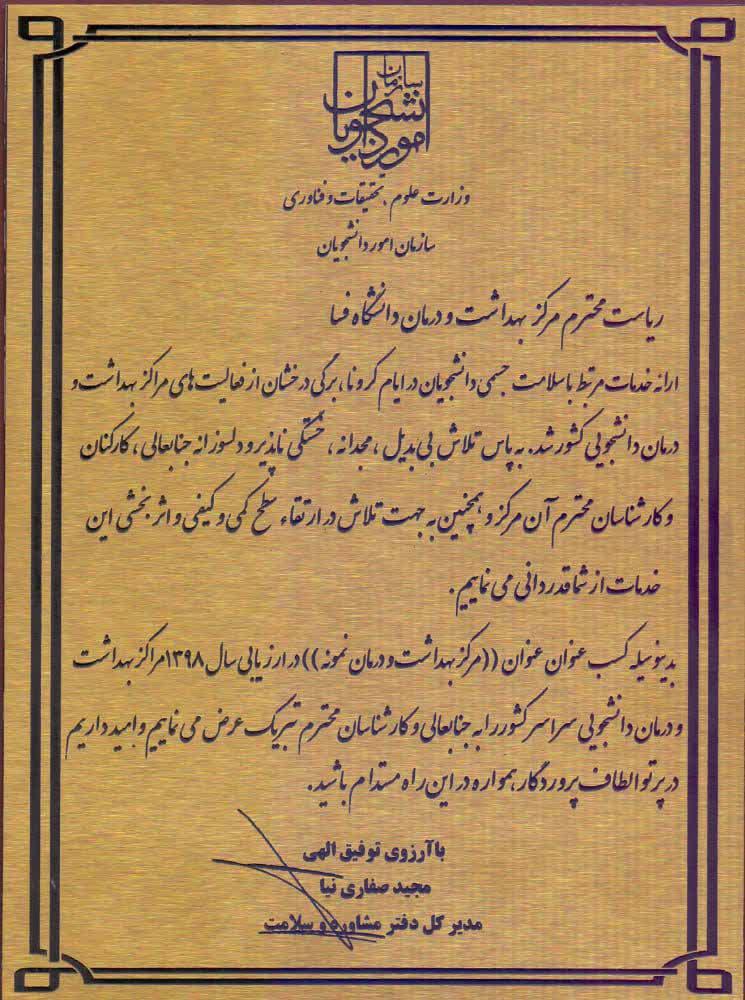 سازمان امور دانشجویان
وزارت علوم، تحقیقات و فناوری
سازمان امور دانشجویان
ریاست محترم مرکز بهداشت و درمان دانشگاه فسا
ارائه خدمات مرتبط با سلامت جسمی دانشجویان در ایام کرونا، برگی درخشان از فعالیت های مراکز بهداشت و
درمان دانشجویی کشور شد. به پاس تلاش بی بدیل ، مجدانه ، خستگی ناپذیر و دلسوزانه جنابعالی ، کارکنان
و کارشناسان محترم آن مرکز و همچنین به جهت تلاش در ارتقاء سطح کمی و کیفی و اثر بخشی این
خدمات از شما قدردانی می نماییم .
بدینوسیله کسب عنوان عنوان ((مرکز بهداشت و درمان نمونه)) در ارزیابی سال ۱۳۹۸ مراکز بهداشت
و درمان دانشجویی سراسر کشور را به جنابعالی و کارشناسان محترم تبریک عرض می نماییم و امید داریم
در پرتو الطاف پروردگار همواره در این راه مستدام باشید.
با آرزوی توفیق الهی
مجید صفاری نیا
مدیر کل دفتر مشاوره و سلامت